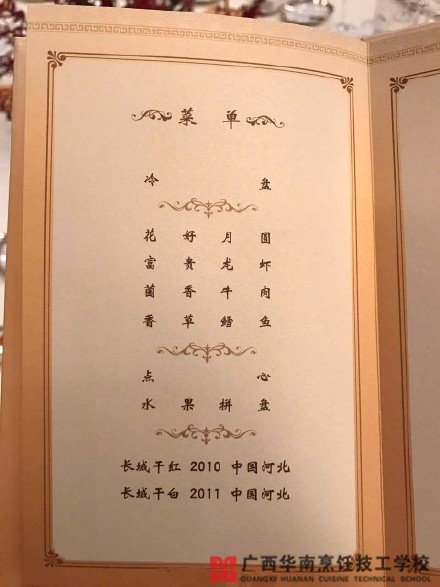 菜单
冷盘
花好月圆
富贵龙虾
菌香牛肉
香草鳕鱼
点心
水果拼盘
长城干红 2010 中国河北
长城干白 2011 中国河北
广西华南烹饪技工学校
GUANGXI HUANAN CUISINE TECHNICAL SCHOOL